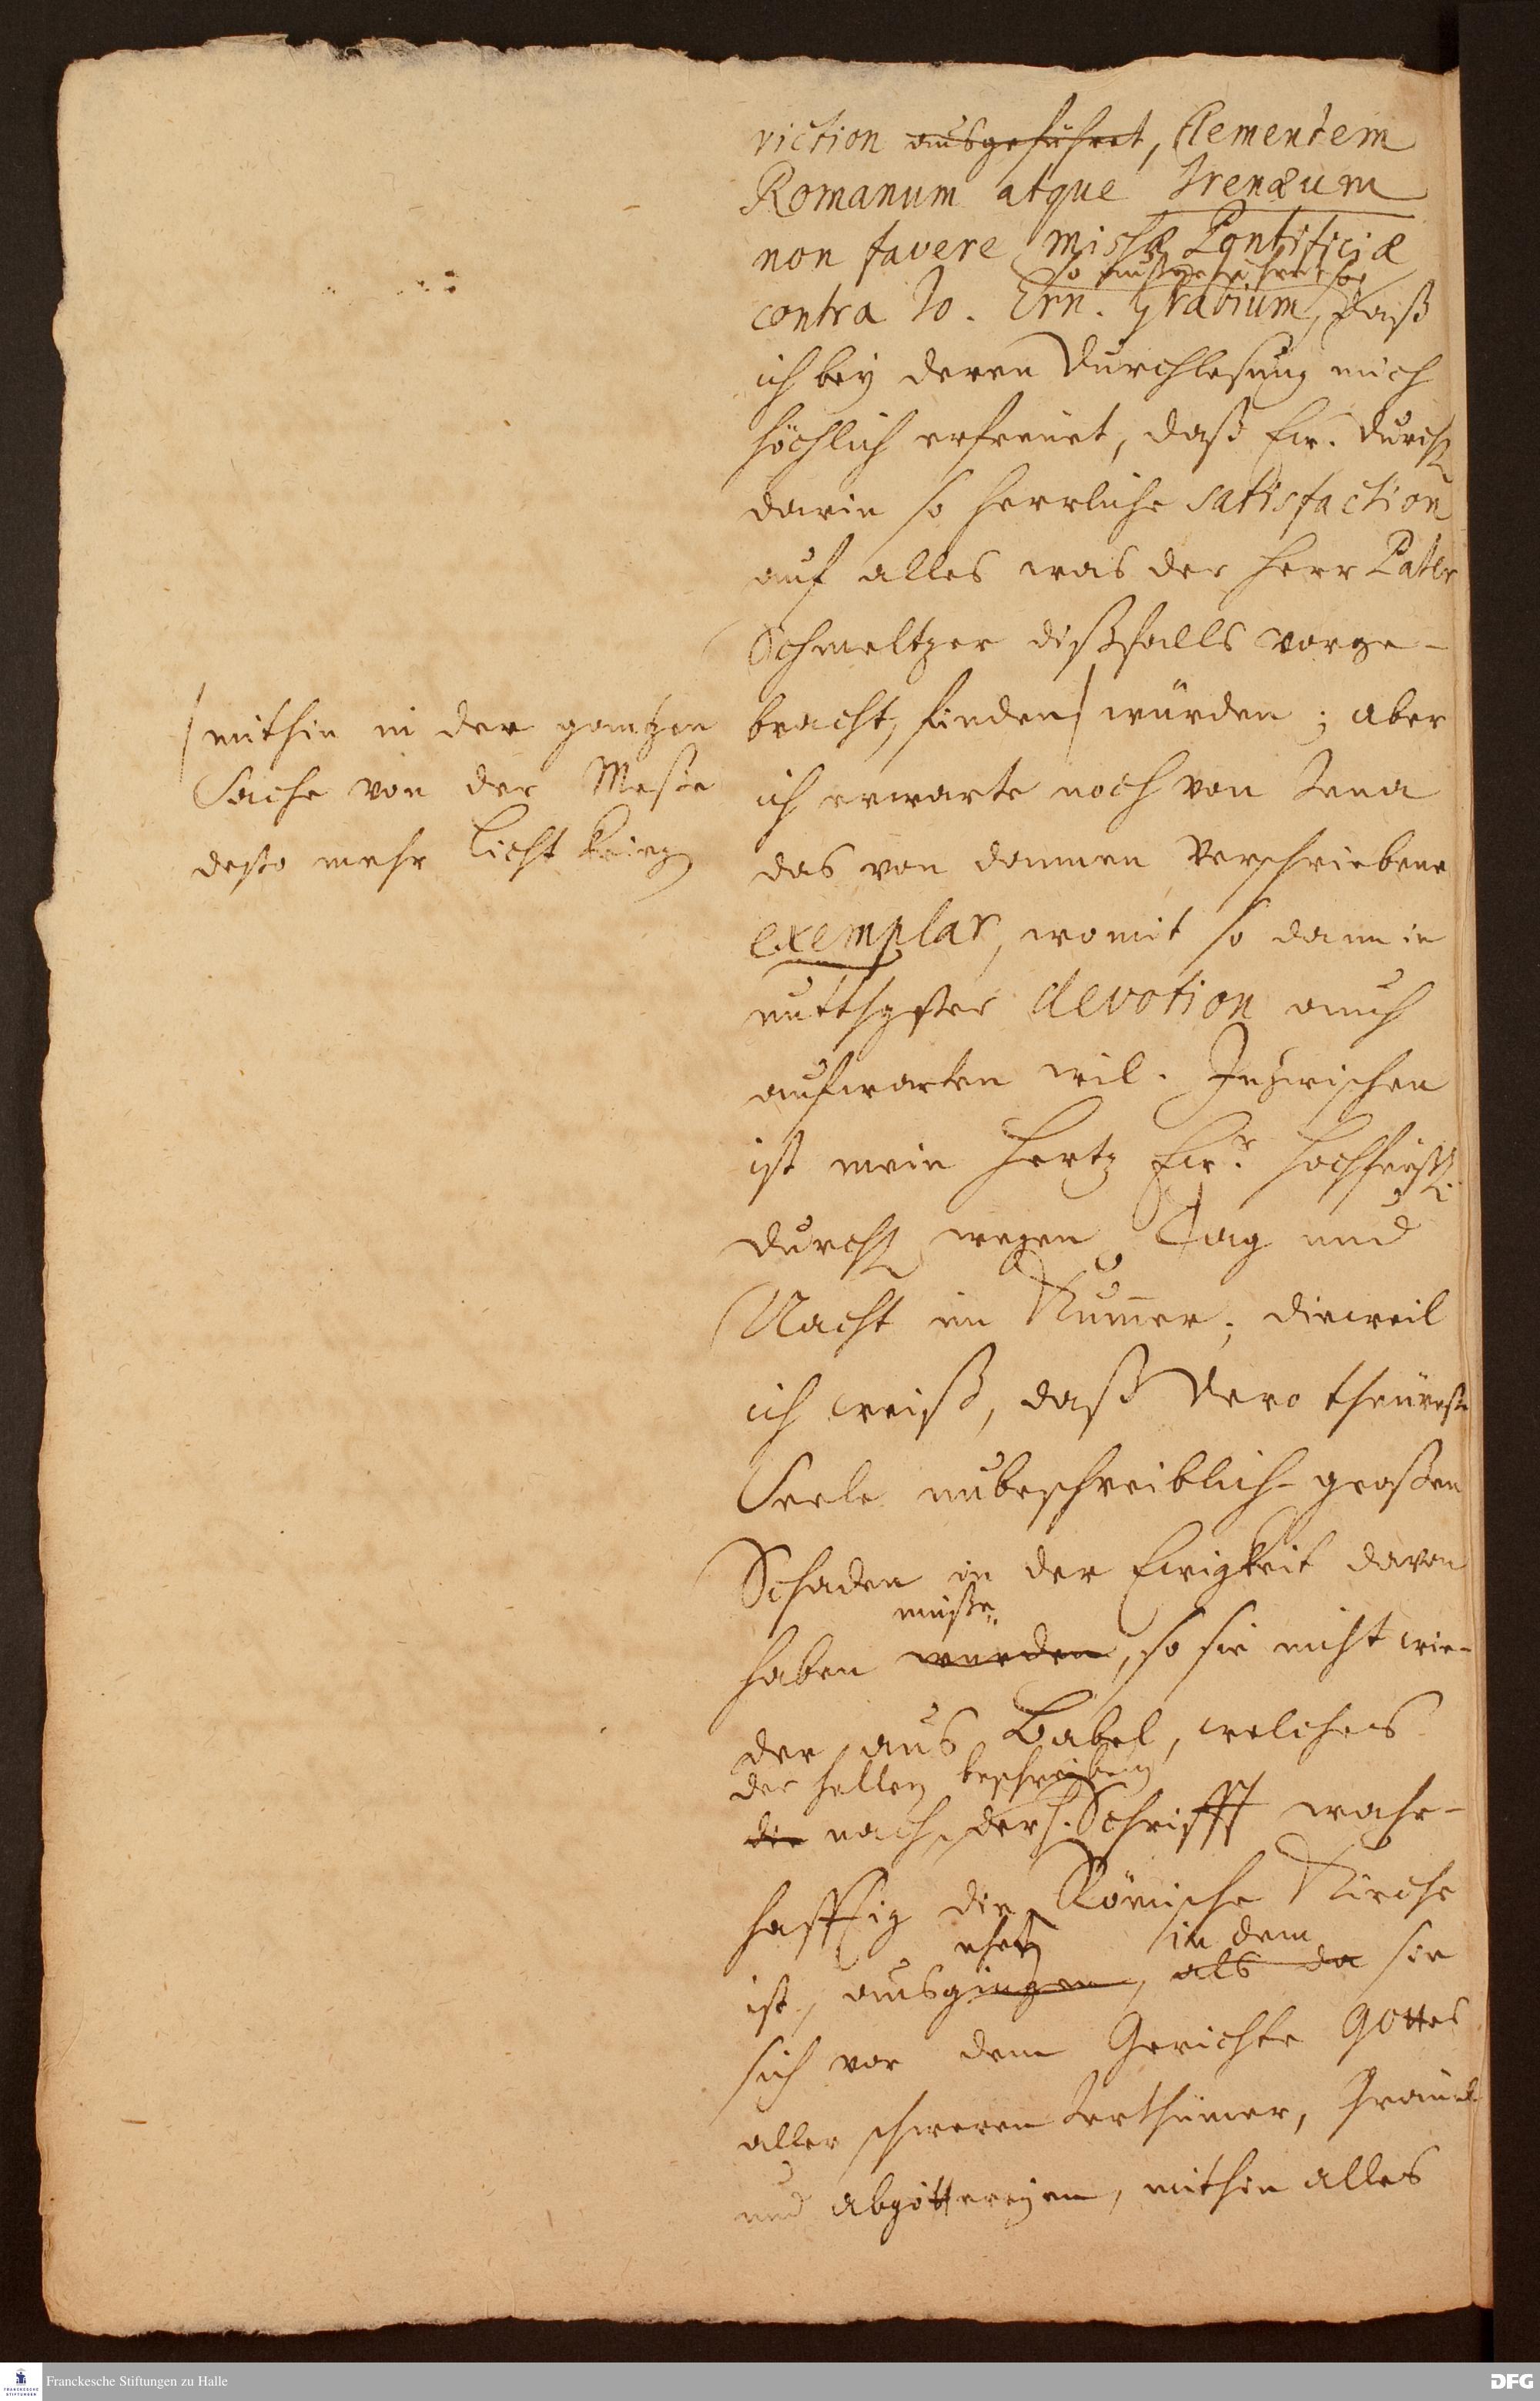 viction ausgeführet, Clementem
Romanum atque Irenæum
non favere missæ Pontificiæ
so ausgeführet
contra Jo. Ern. Grabium, daß
ich bey deren Durchlesung mich
höchlich erfreuet, daß Ew. Durchl
darin so herrliche satisfaction
auf alles was der Herr Pater
Schmeltzer dißfalls vorge-
bracht, finden / würden; aber
/ mithin in der gantzen
Sache von der Messe
desto mehr Licht krieg
ich erwarte noch von Jena
das von dannen verschriebene
exemplar, womit so dann in
unterthgster devotion auch
aufwarten wil. Inzwischen
ist mein Hertz Ewr. Hochfürstl.
Durchl wegen Tag und
Nacht im Kummer; dieweil
ich weiß, daß Dero theureste
Seele unbeschreiblich-großen
Schaden in der Ewigkeit davon
müße
haben wurden, so sie nicht wie-
der aus Babel, welches
der hellen beschreibung
die nach der h. Schrifft wahr-
hafftig die Römische Kirche
in dem
ist, ausgingen, als da sie
sich vor dem Gerichte Gottes
aller schweren Irrthümer, Gräuel
und Abgöttereyen, mithin alles
Franckesche Stiftungen zu Halle
DFG